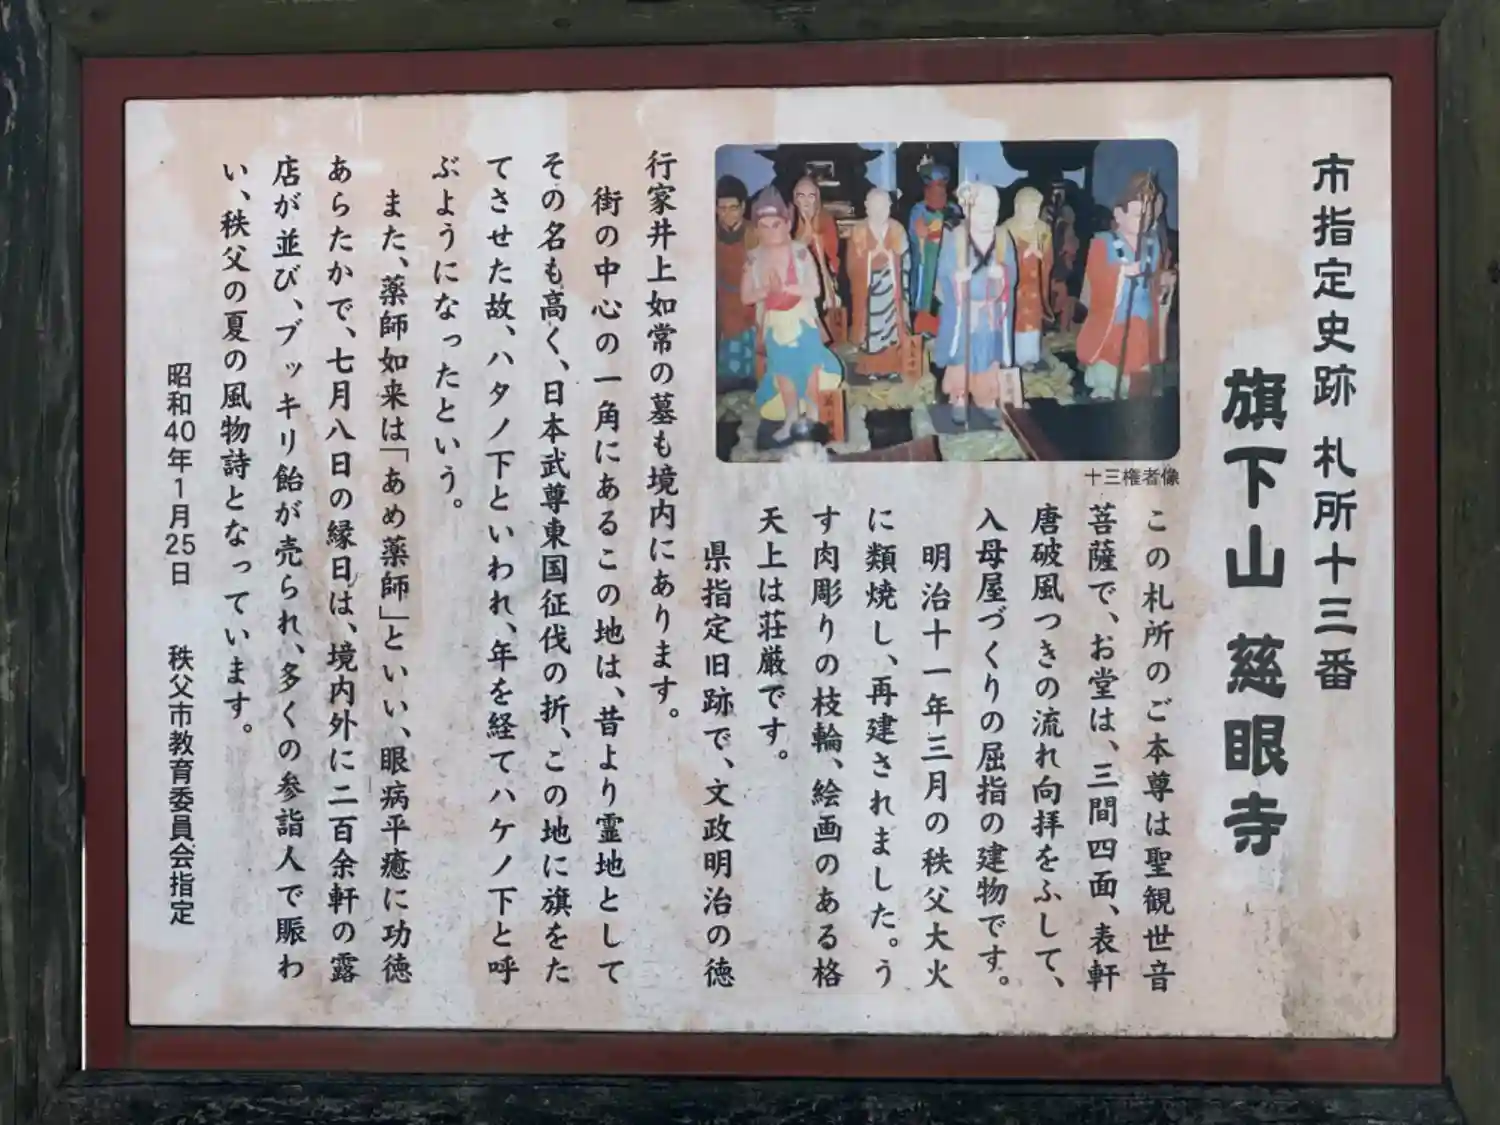 市指定史跡 札所十三番
旗下山 慈眼寺
十三権者像
この札所のご本尊は聖観世音
菩薩で、お堂は、三間四面、表軒
唐破風つきの流れ向拝をふして、
入母屋づくりの屈指の建物です。
明治十一年三月の秩父大火
に類焼し、再建されました。う
す肉彫りの枝輪、絵画のある格
天上は荘厳です。
県指定旧跡で、文政明治の徳
行家井上如常の墓も境内にあります。
街の中心の一角にあるこの地は、昔より霊地として
その名も高く、日本武尊東国征伐の折、この地に旗をた
てさせた故、ハタノ下といわれ、年を経てハケノ下と呼
ぶようになったという。
また、薬師如来は「あめ薬師」といい、眼病平癒に功徳
あらたかで、七月八日の縁日は、境内外に二百余軒の露
店が並び、ブッキリ飴が売られ、多くの参詣人で賑わ
い、秩父の夏の風物詩となっています。
昭和40年1月25日 秩父市教育委員会指定